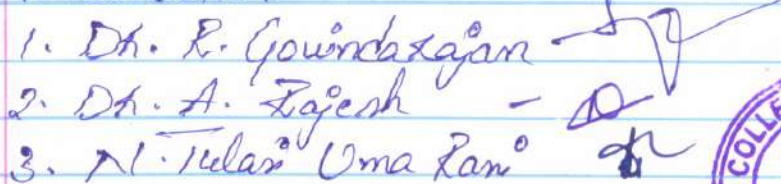 1. Dr. R. Govindarajan -
2. Dr. A. Rajesh -
3. N. Tulasi Uma Rani
COLLE